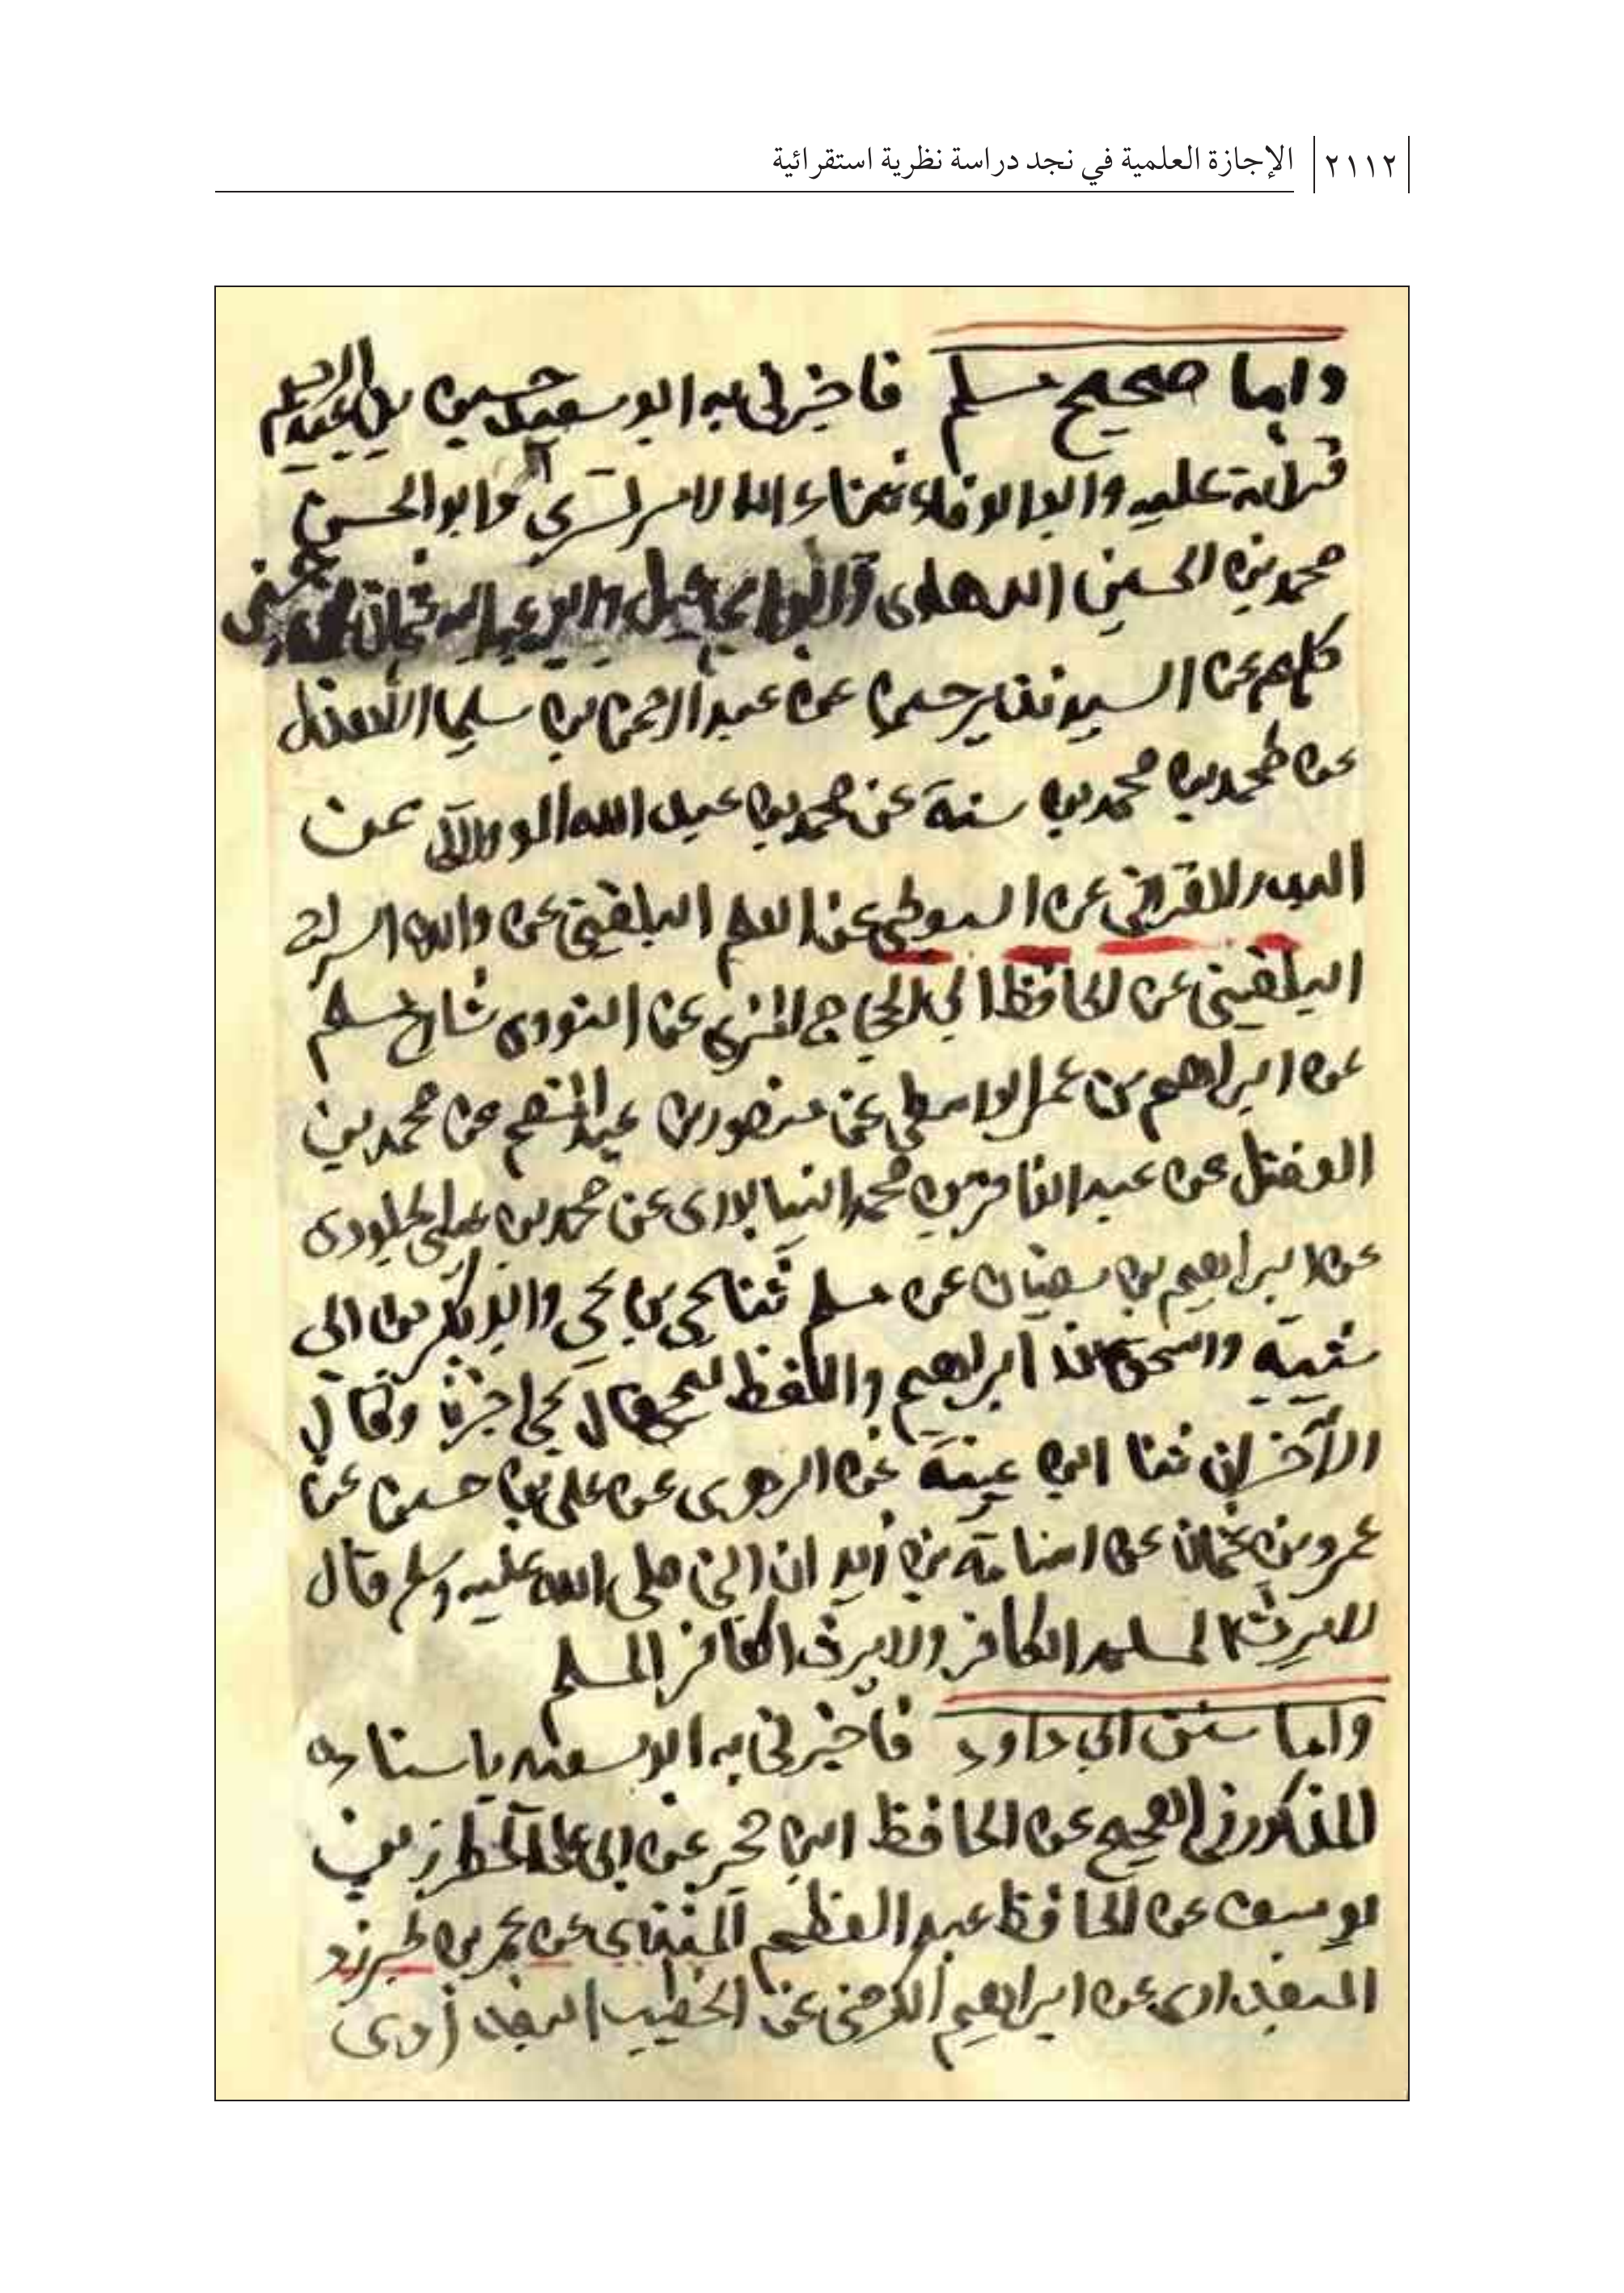 ٢١١٢ الإجازة العلمية في نجد دراسة نظرية استقرائية
واما صحيح مسلم فاخبرني به ابو سعيد حسين بن عبد الرحيم
قراءة عليه وابو الوفاء ثناء الله الامرتسري وابو الحسن
محمد بن الحسين الدهلوى
كلهم عن السيد نذير حسين عن عبد الرحمن بن سليمان الاهدل
عن محمد بن محمد بن سنة عن محمد بن عبد الله الولاتي عن
البدر القرافي عن السيوطي عن العلم البلقيني عن والده السراج
البلقيني عن الحافظ ابي الحجاج المزي عن النووى شارح مسلم
عن ابراهيم بن عمر الواسطي عن منصور بن عبد المنعم عن محمد بن
الفضل عن عبد الغافر بن محمد النيسابورى عن محمد بن عيسى الجلودى
عن ابراهيم بن سفيان عن مسلم ثنا يحي بن يحي وابو بكر بن ابى
شيبة واسحق بن ابراهيم واللفظ ليحي قال يحي اخبرنا وقال
الآخران ثنا ابن عيينة عن الزهرى عن علي بن حسين عن
عمرو بن عثمان عن اسامة بن زيد ان النبي صلى الله عليه وسلم قال
لا يرث المسلم الكافر ولا يرث الكافر المسلم
واما سنن ابي داود فاخبرني به ابو سعيد باسناده
المذكور في الصحيح عن الحافظ ابن حجر عن ابي علي المطرز بن
يوسف عن الحافظ عبد العظيم المنذري عن عمر بن طبرزد
البغدادى عن ابراهيم الكرخي عن الخطيب البغدادى